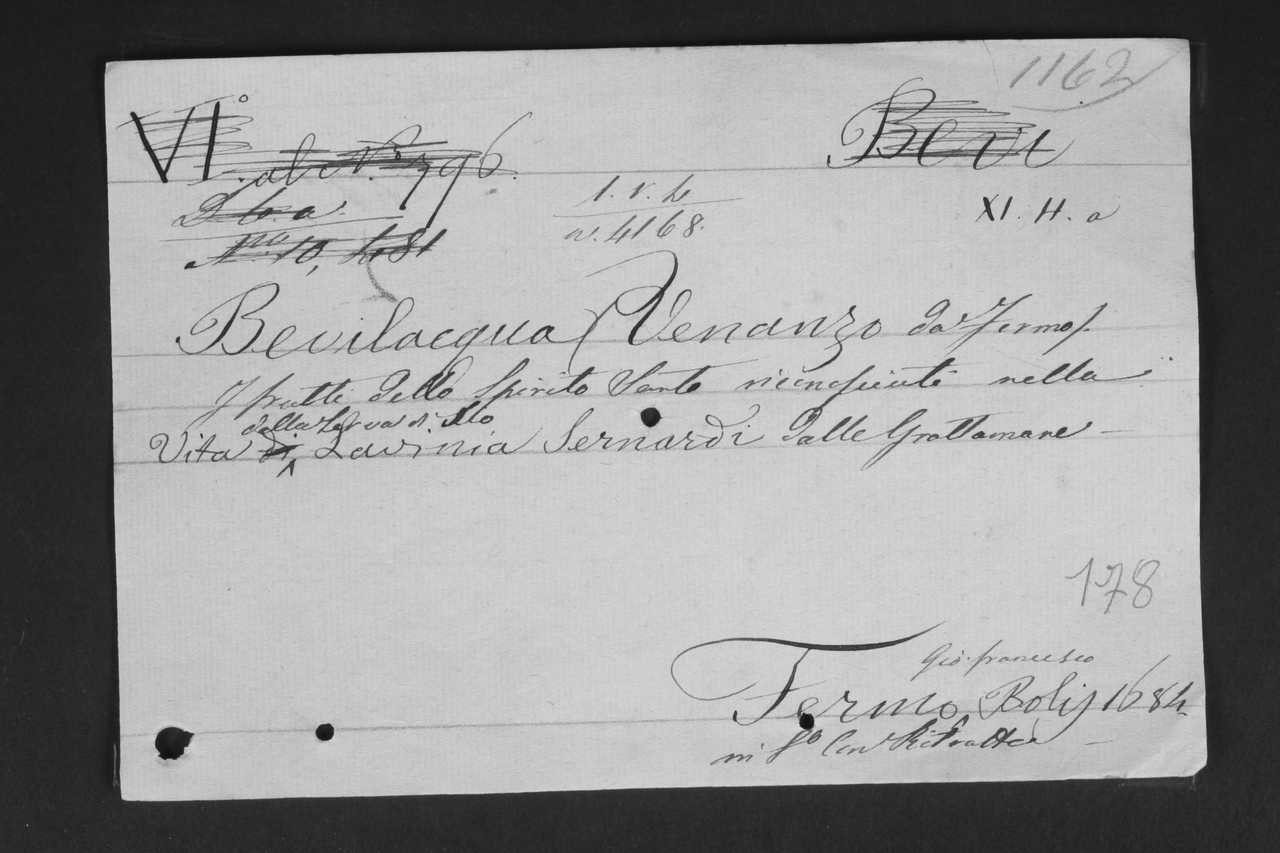 1162
VI.° al N.° 796.
Bevi
D. b. a.
N.ro 10,481
1. v. 4
n. 4168.
XI. H. a
Bevilacqua Venanzo da Fermo/.
I frutti dello Spirito Santo riconosciuti nella
della Serva di Dio
Vita di Lavinia Sernardi dalle Grottamare -
178
Gio: francesco
Fermo Bolis 1684
in f.º Con Ritratto -